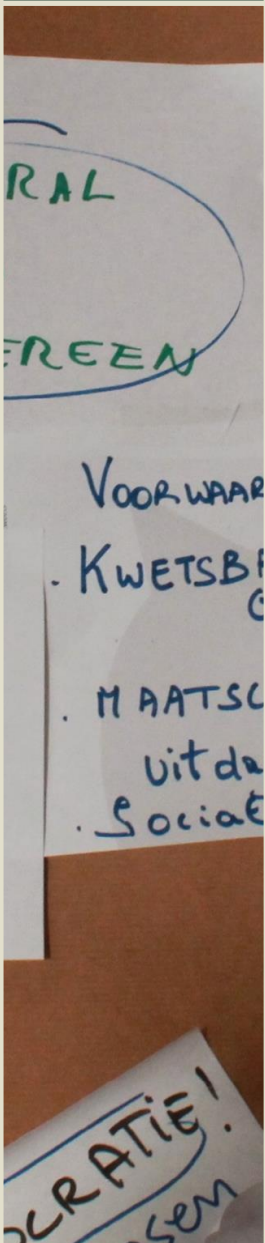 RAL
EREEN
VOORWAAR
. KWETSB
. MAATSC
uitda
. Sociat
OCRATIE!
sen